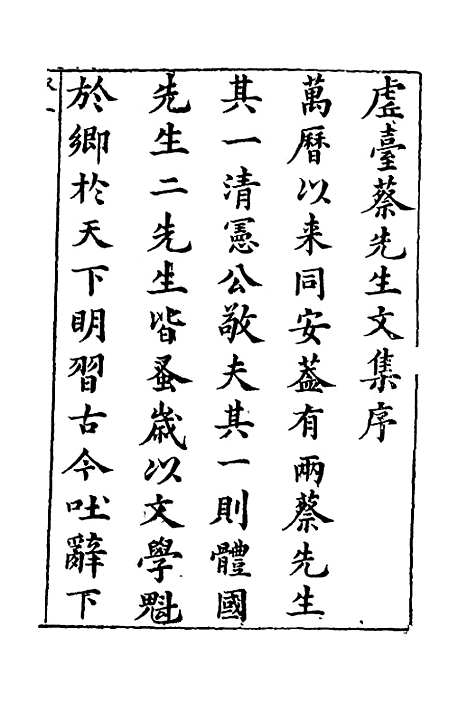 虗臺蔡先生文集序
萬曆以来同安葢有兩蔡先生
其一清憲公敬夫其一則體國
先生二先生皆蚤歲以文學魁
於鄉於天下明習古今吐辭下